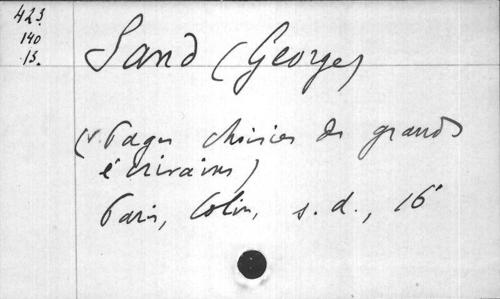 423.
140
13.
Sand (George)
(v. Pages choisies des grands
écrivains)
Paris, Colin, s. d., 16°